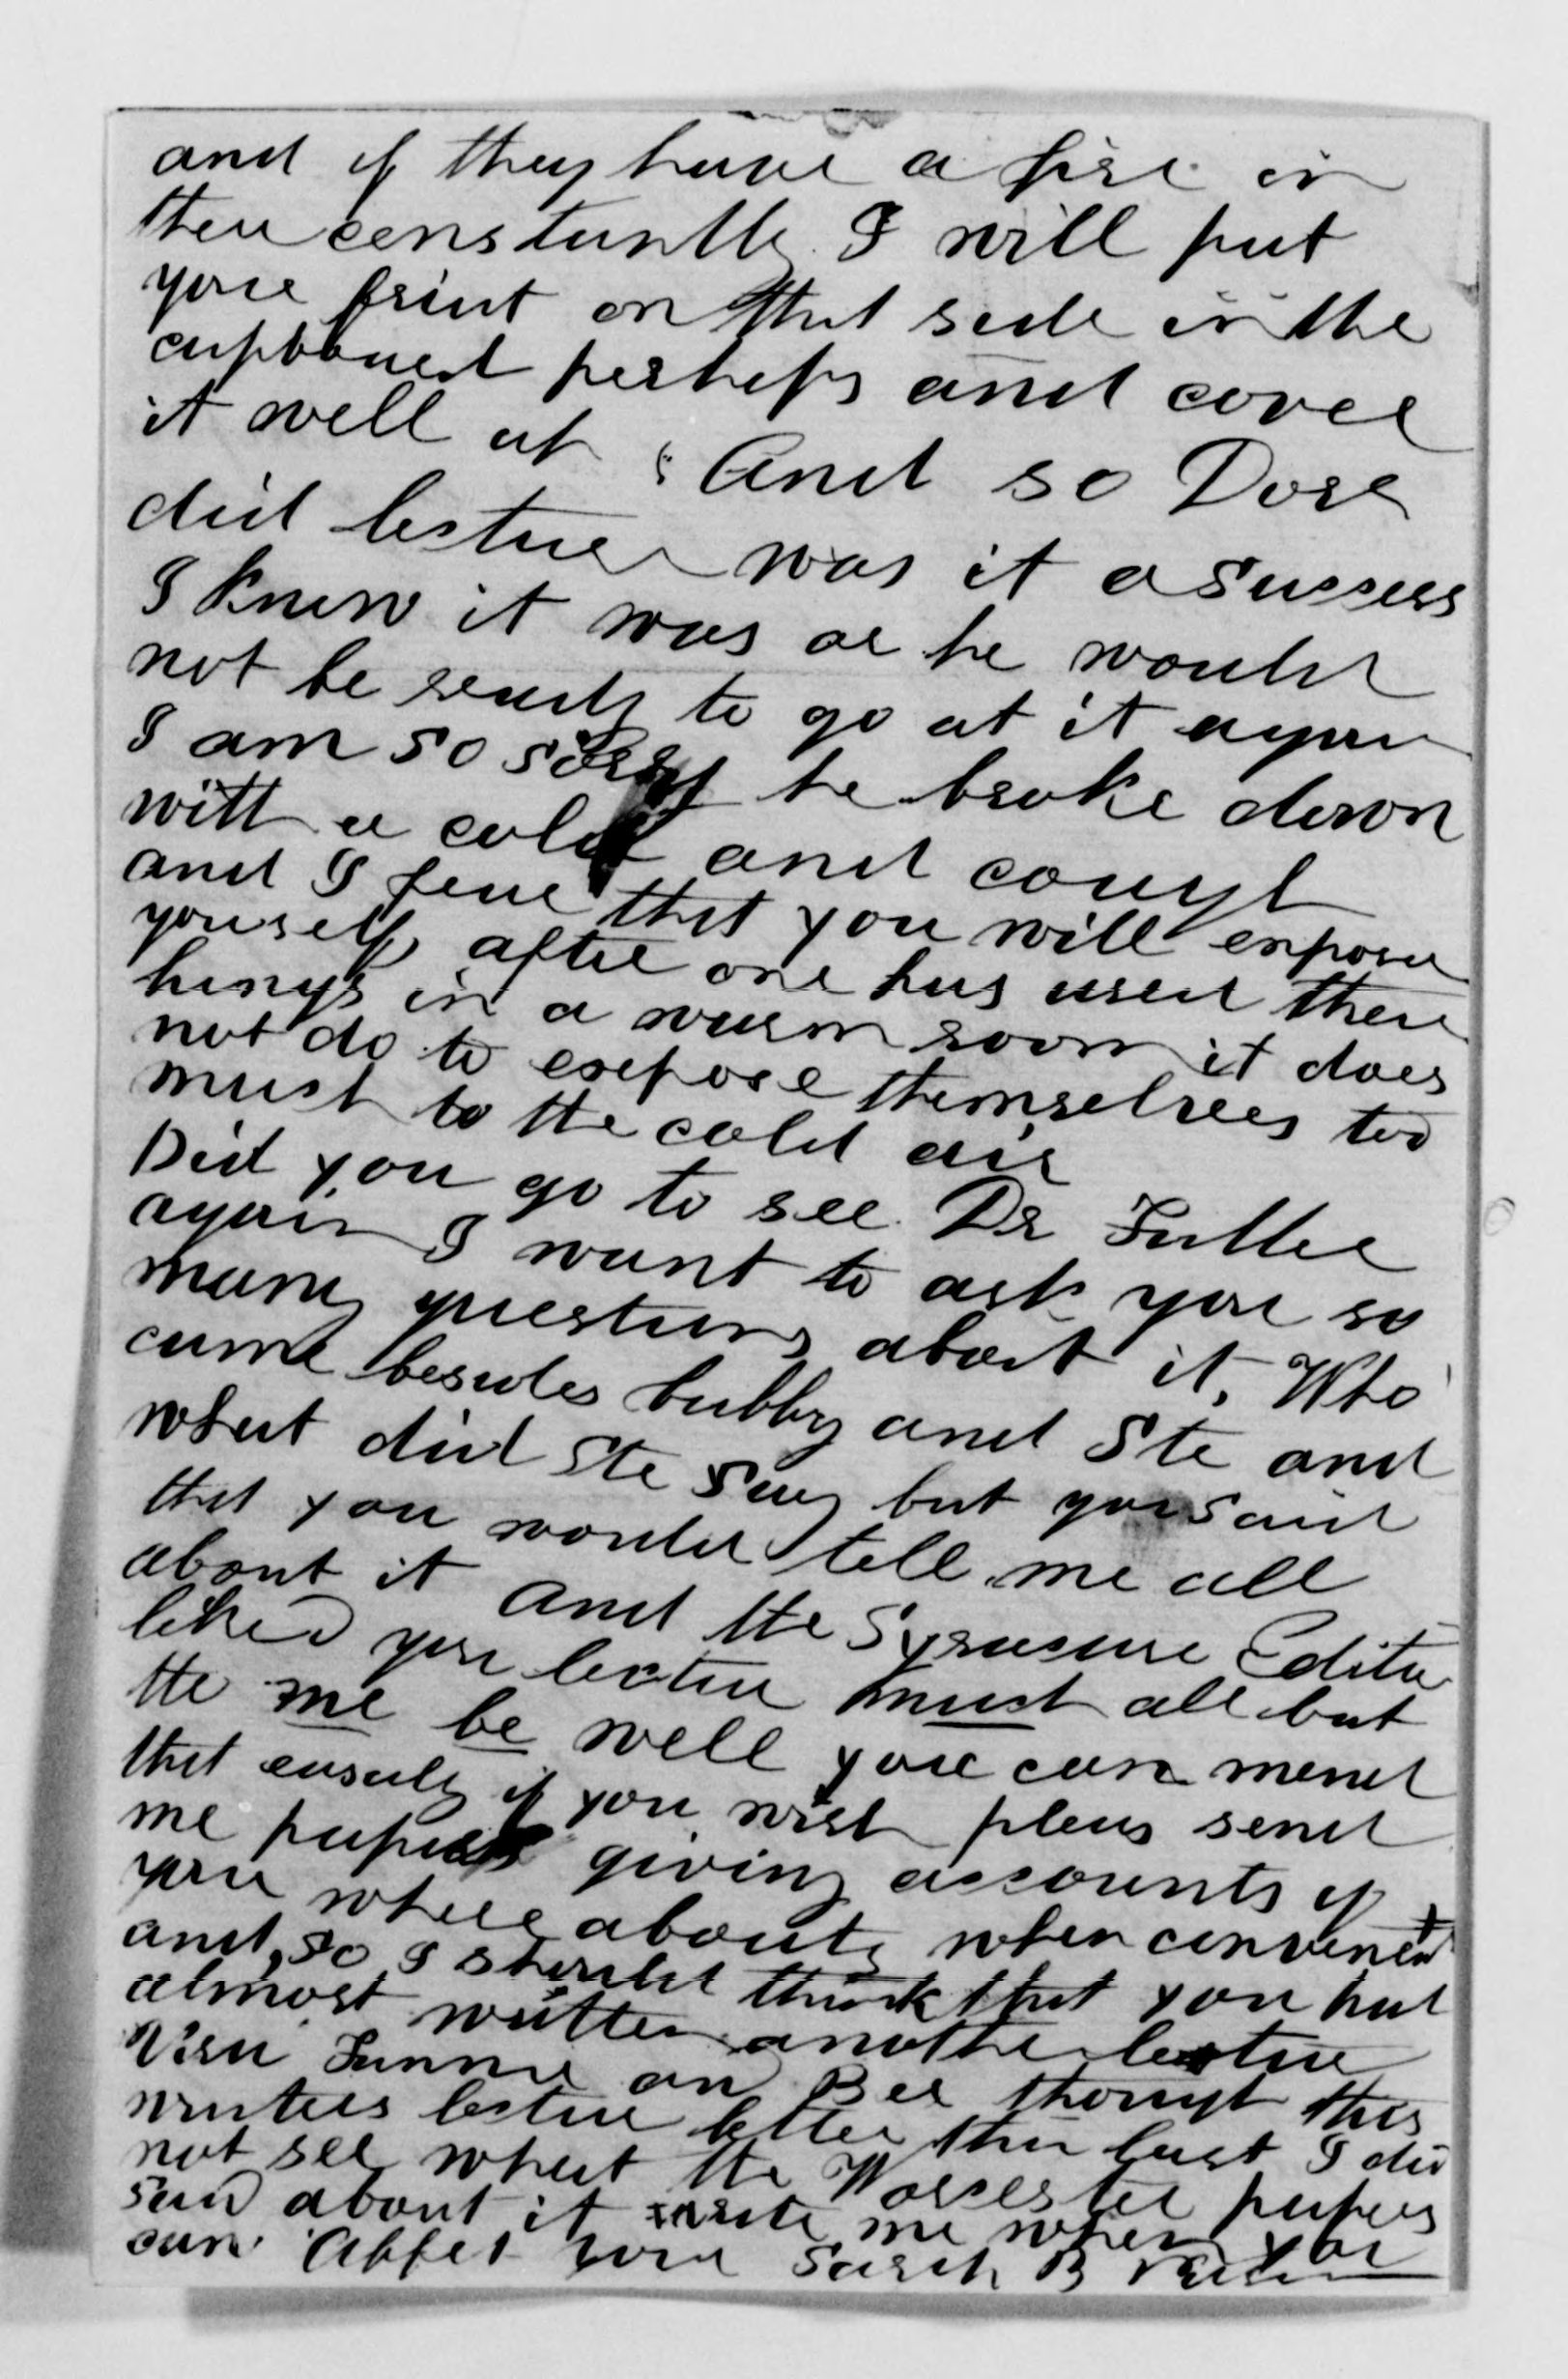 and if they have a fire in
there constantly I will put
your fruit on that side in the
cupboard perhaps and cover
it well up And so Dore
did lecture was it a success
I knew it was or he would
not be ready to go at it again
I am so sorry he broke down
with a cold and cough
and I fear that you will expose
youself after one has used there
lungs in a warm room it does
not do to exepose themselvees too
much to the cold air
Did you go to see Dr Fuller
again I want to ask you so
many questions about it. Who
came besides bubby and Ste and
what did Ste say but you said
that you would tell me all
about it And the Syracuse Editor
liked your lecture must all but
the me be well you can mend
that easily if you wish pleas send
me papers giving accounts of
your where abouts when convenient
and, so I should think that you had
almost written another lecture
Fannie an Bee thought this
winters lecture better than last I did
not see what the Worcester papers
said about it write me when you
can Affet your Sarah B